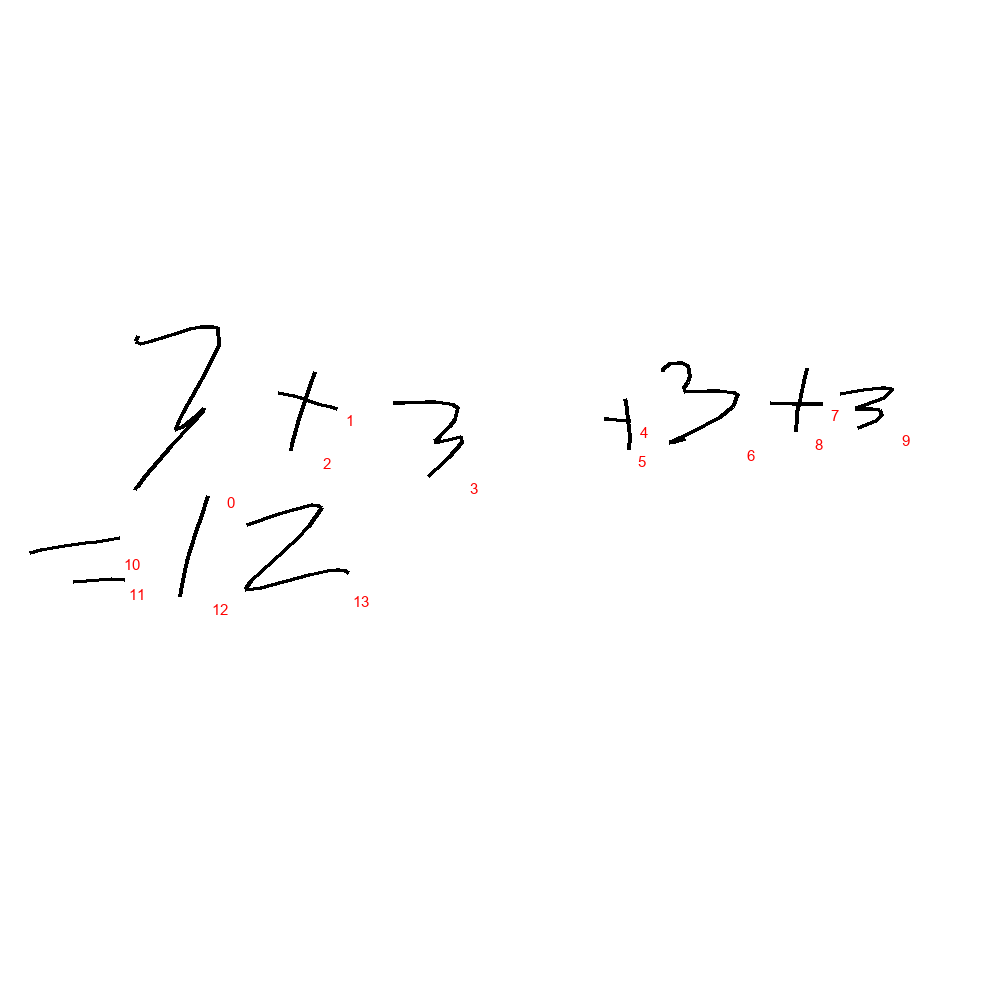 3+3 +3+3
=12
0 1 2 3 4 5 6 7 8 9
10 11 12 13